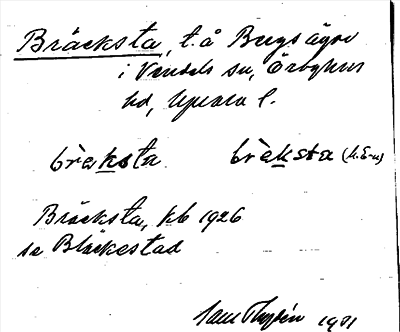 Bräcksta, t. å Bergs ägor
i Vendels sn, Örbyhus
hd, Uppsala l.
brèksta brèksta (M.E-n)
Bräcksta, kb 1926
se Bläckestad
1931